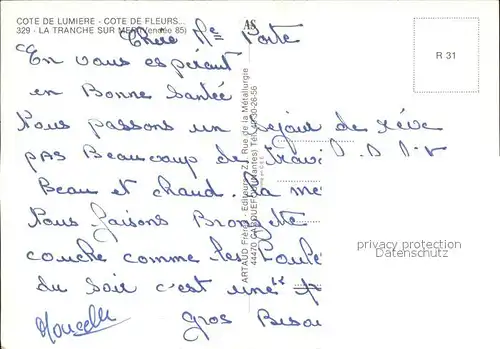 COTE DE LUMIERE - COTE DE FLEURS...
329 - LA TRANCHE SUR MER (Vendée 85)
AS
R 31
Chère Me Porte
En vous espérant
en Bonne Santée
Nous passons un séjour de rêve
pas Beaucoup de
Beau et chaud. La me
Nous faisons Bronzette
couché comme les Poule
du soir c'est une
Marcelle gros Bisou
ARTAUD Frères - Editeurs - Z.I. Rue de la Métallurgie
44470 CARQUEFOU (Nantes) Tél.
privacy protection
Datenschutz